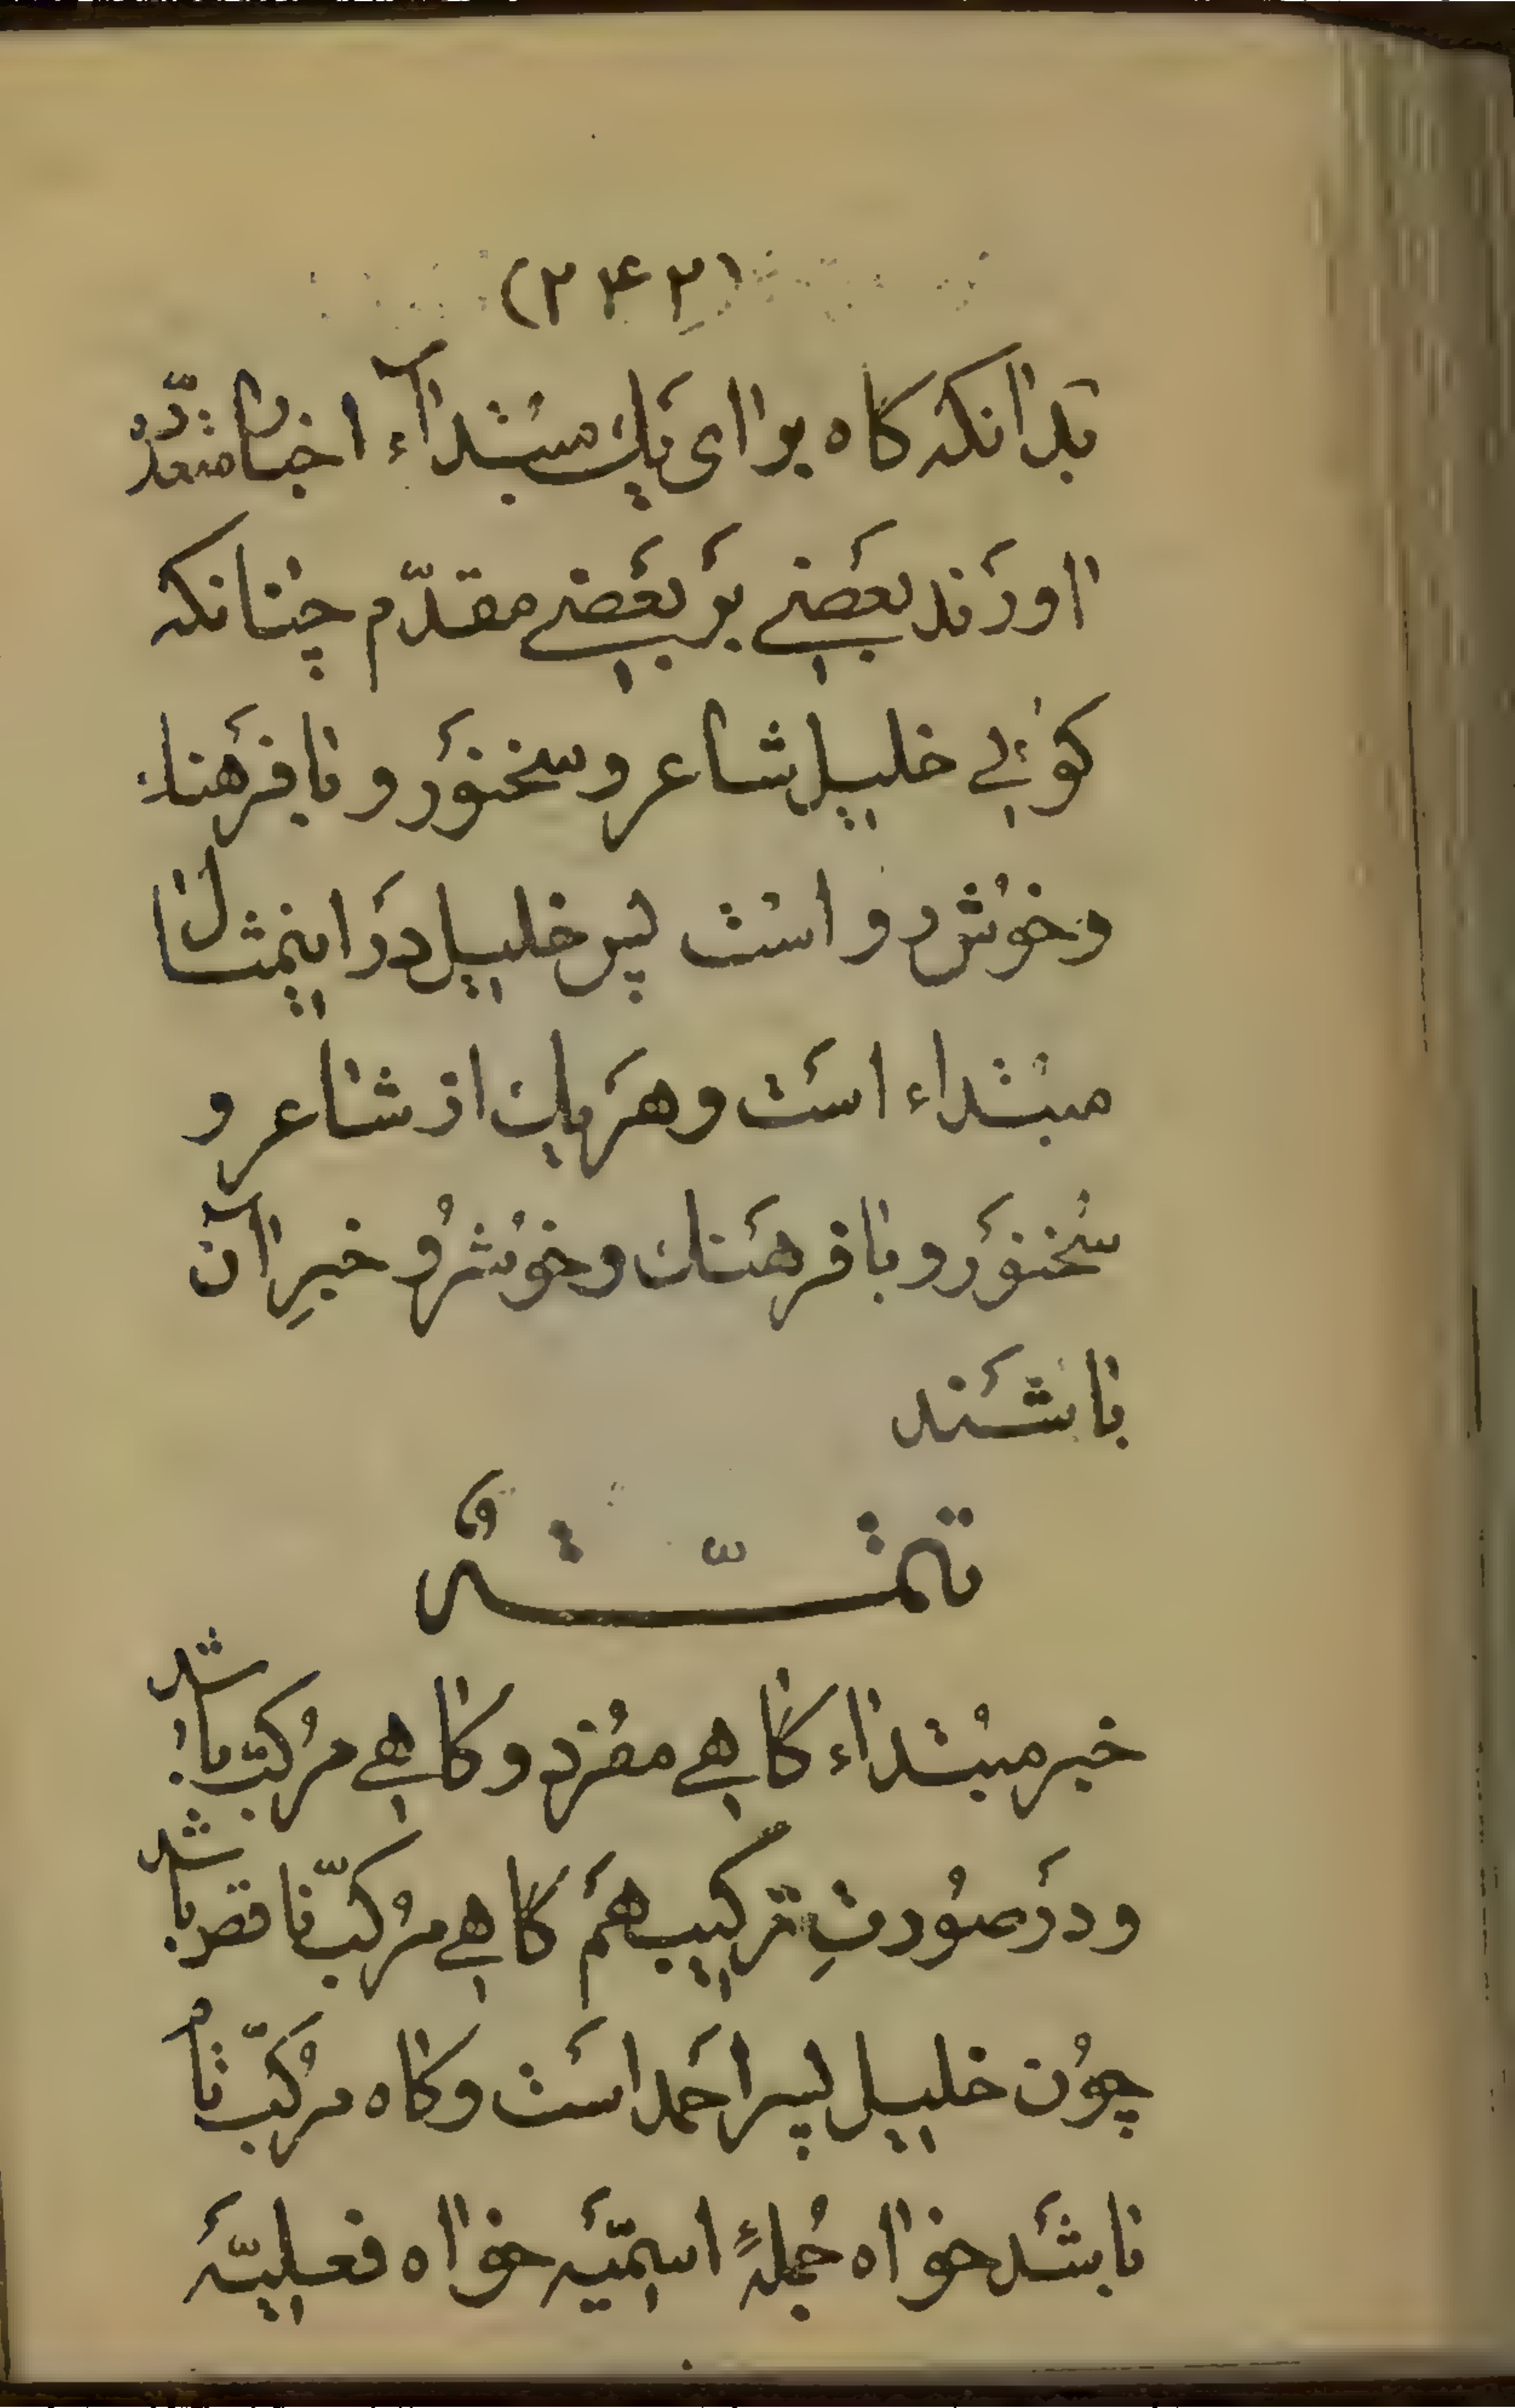 (۲۴۲)
بدانکه گاه برای یک مبتداء اخبار متعدّده
آورند بعضی بر بعضی مقدّم چنانکه
گوئی خلیل شاعر و سخنور و بافرهنک
و خوش رو است پس خلیل در اینمثال
مبتداء است و هر یک از شاعر و
سخنور و بافرهنک و خوشرو خبرِ آن
باشند
تتمّه
خبر مبتداء کاهی مفرد و کاهی مرکّب باشد
و در صورتِ ترکیب هم گاهی مرکّب ناقص باشد
چون خلیل پسر احمد است و کاه مرکّب تام
باشد خواه جملهٔ اسمیّه خواه فعلیّه